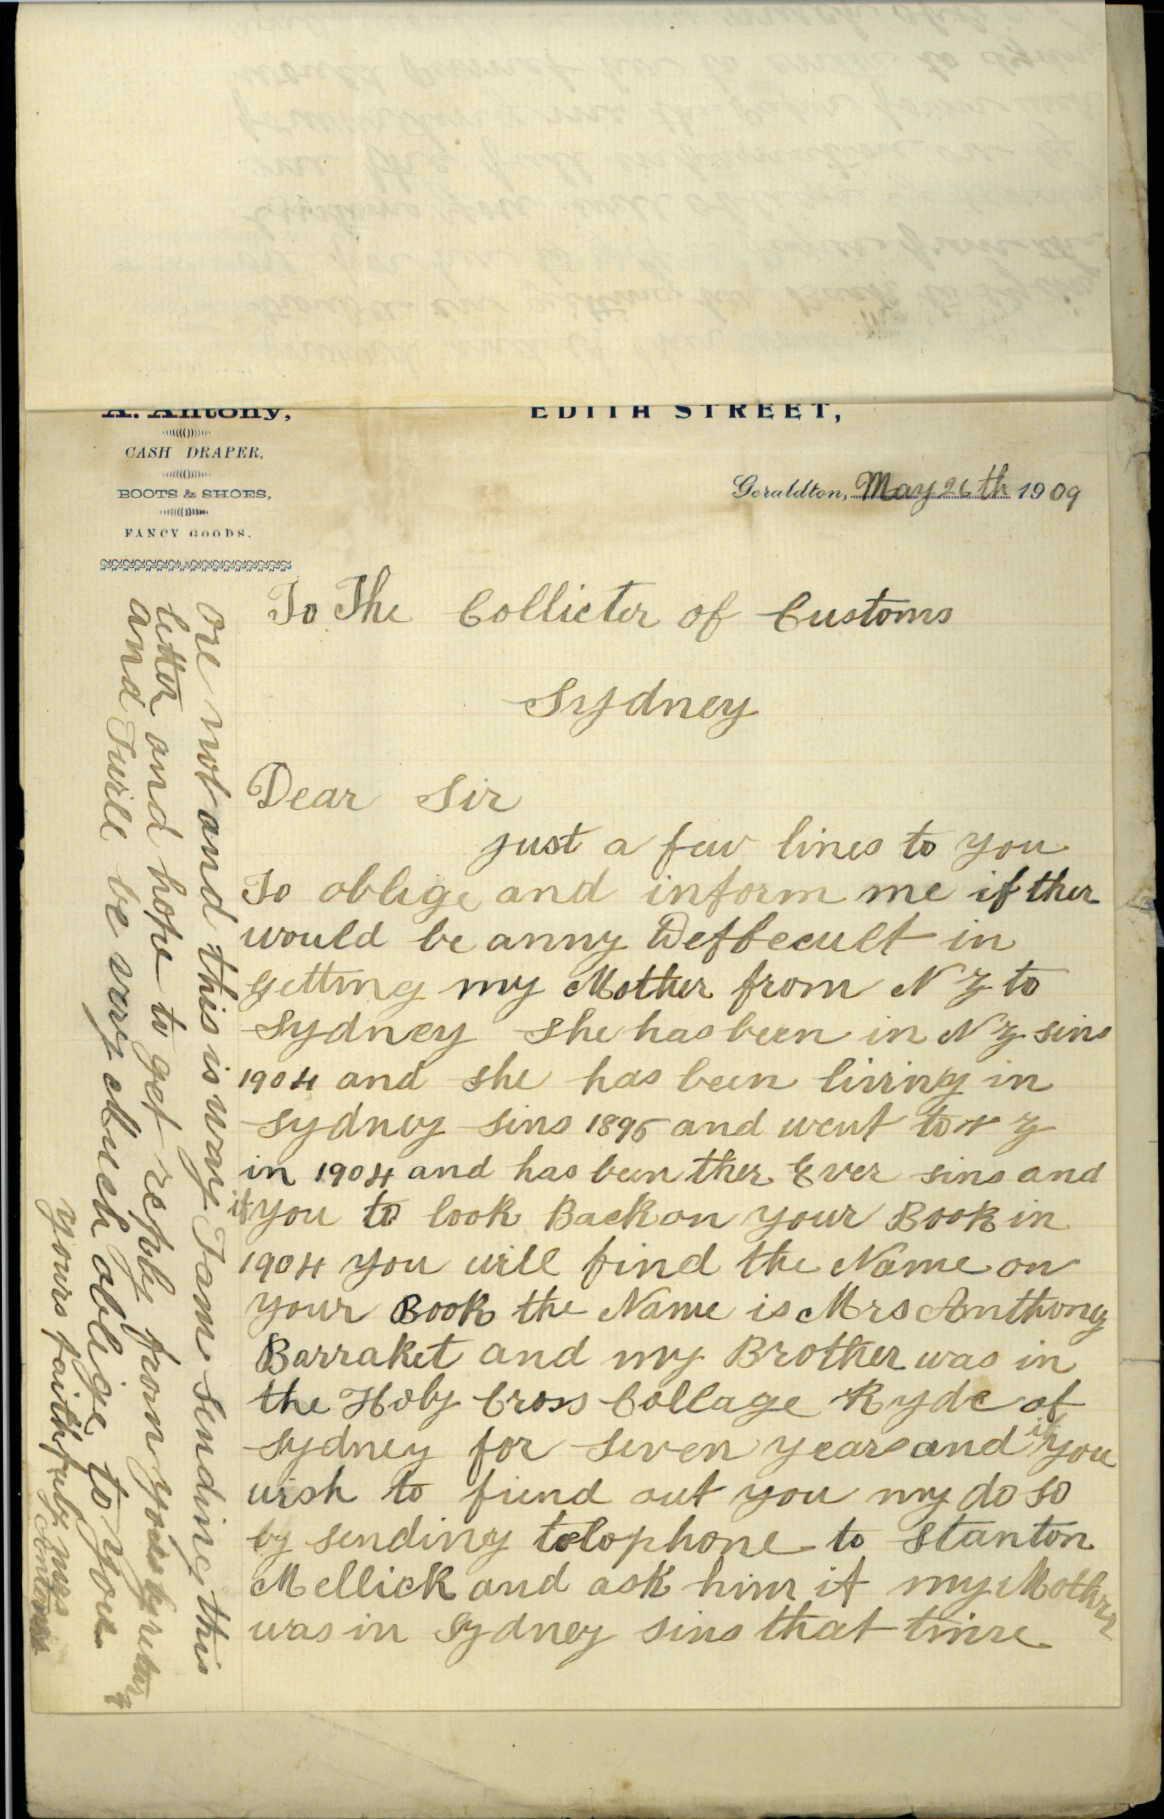 A. Antony,
CASH DRAPER,
BOOTS & SHOES,
FANCY GOODS.
EDITH STREET,
Geraldton, May 26th 1909
To The Collicter of Customs
Sydney
Dear Sir
just a few lines to you
To oblige and inform me if ther
would be anny Deffecult in
getting my Mother from N Z to
Sydney she has been in N Z sins
1904 and she has been living in
Sydney sins 1895 and went to N Z
in 1904 and has been ther Ever sins and
if you to look Back on your Book in
1904 you will find the Name on
your Book the Name is Mrs Anthony
Barraket and my Brother was in
the Holy Cross Collage Ryde of
Sydney for seven years and if you
wish to fiend out you my do so
by sending telophone to Stanton
Mellick and ask him if my Mother
was in Sydney sins that time
ore not and this is way I am sending this
letter and hope to get reply from you by return
and I will be very Much oblige to you
yours faithfuly Mrs
Antony